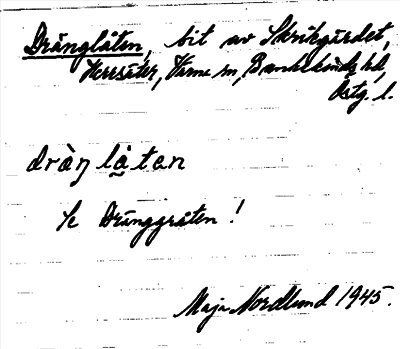 Dränglåten, bit av Skrikgärdet,
Herrsäter, Värna sn, Bankekinds hd,
Östg. l.
dràŋ lå̀tan
Se Dränggråten!
Maja Nordlund 1945.